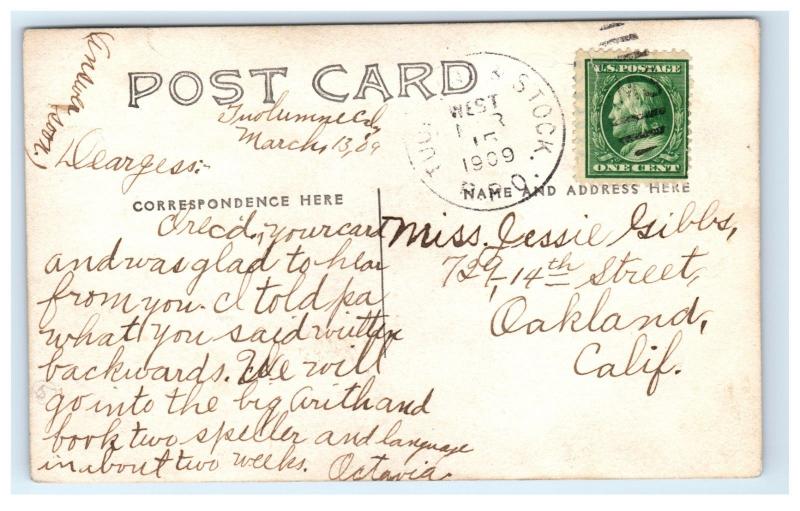 (Answer soon.)
POST CARD
Tuolumne Cal,
March, 13, 09
Deargess:-
CORRESPONDENCE HERE
NAME AND ADDRESS HERE
I rec'd, your card
and was glad to hear
from you. I told pa
what you said written
backwards. We will
go into the big arith and
book two speller and language
in about two weeks. Octavia.
Miss. Jessie Gibbs,
729, 14th Street,
Oakland,
Calif.
& STOCK.
WEST
MAR
15
1909
R.P.O.
U.S. POSTAGE
ONE CENT